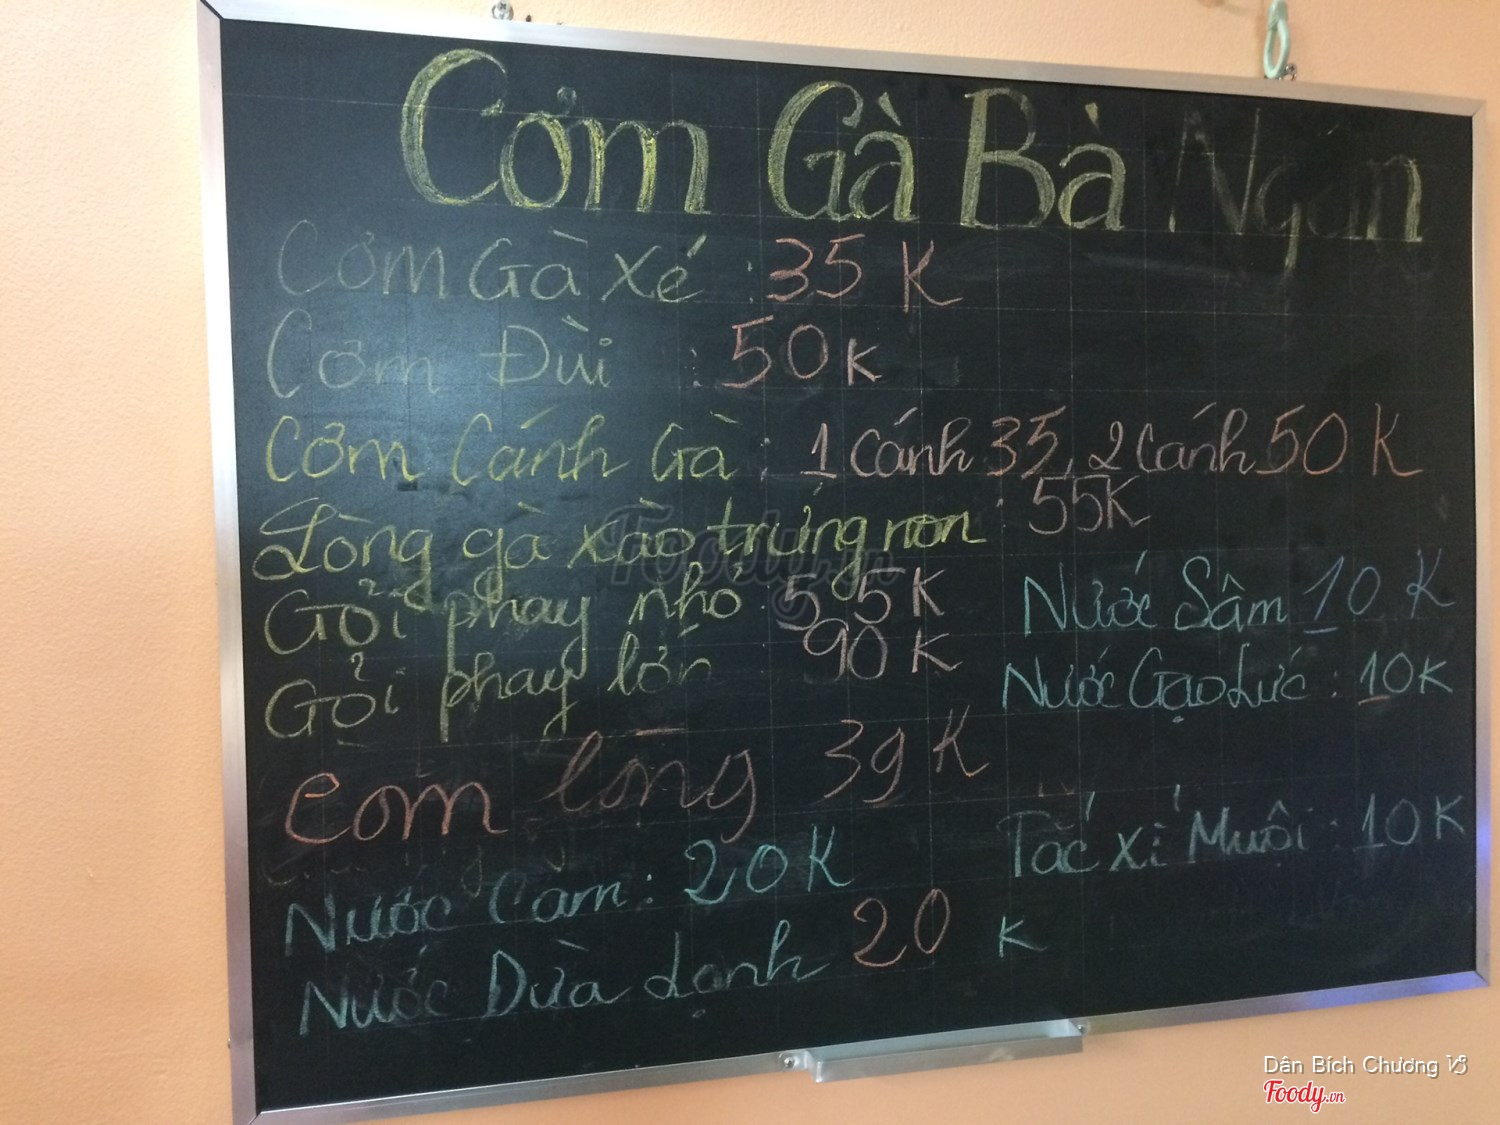 Cơm Gà Bà Ngân
Cơm Gà Xé : 35 K
Cơm Đùi : 50 K
Cơm Cánh Gà : 1 Cánh 35, 2 Cánh 50 K
Lòng gà xào trứng non : 55K
Gỏi phay nhỏ : 55K
Gỏi phay lớn 90 K
Cơm lòng 39 K
Nước Cam : 20 K
Nước Dừa Lạnh 20 K
Nước Sâm 10 K
Nước Gạo Lức : 10K
Tắc xí Muội : 10 K
Foody.vn
Dân Bích Chương
Foody.vn